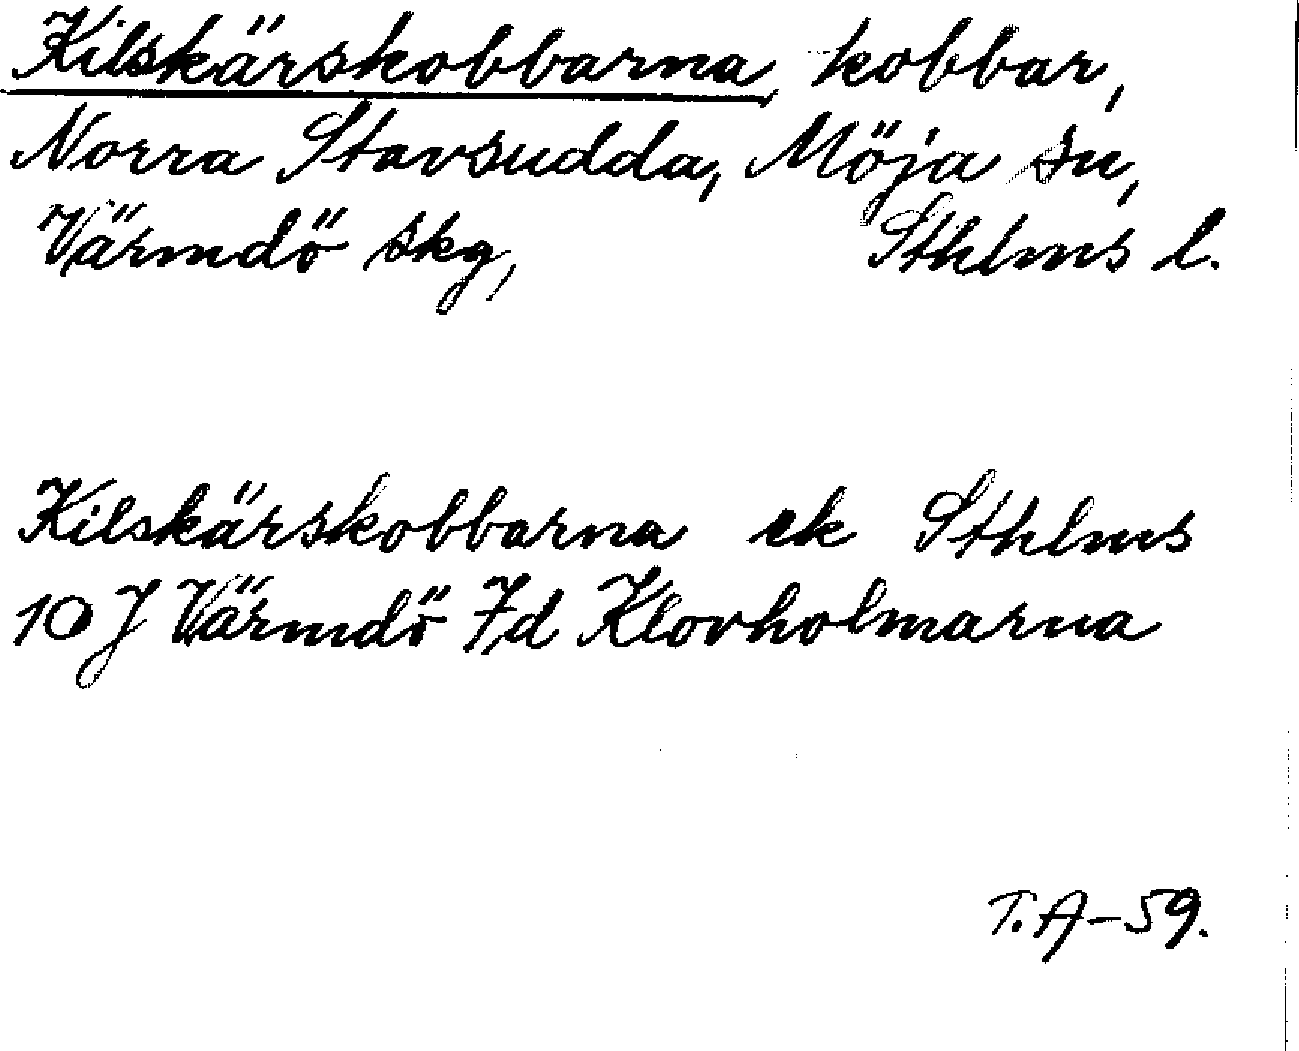 Kilskärskobbarna, kobbar,
Norra Stavsudda, Möja sn,
Värmdö skg, Sthlms l.
Kilskärskobbarna ek Sthlms
10 J Värmdö 7d Klovholmarna
T.A-59.